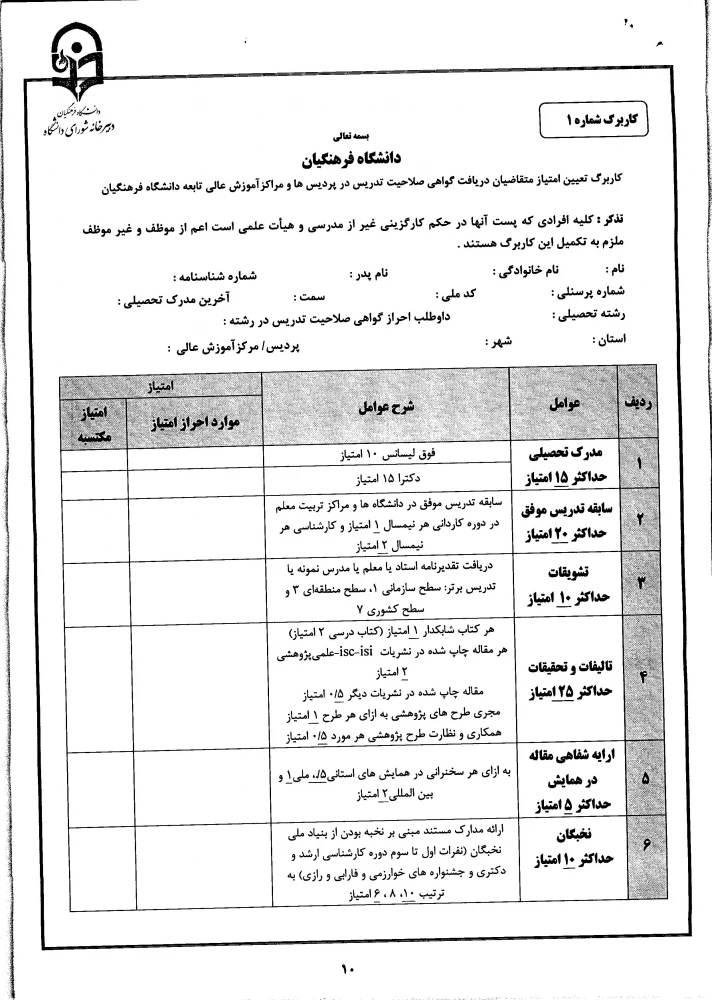 دانشگاه فرهنگیان
دبیرخانه شورای دانشگاه
کاربرگ شماره ۱
بسمه تعالی
دانشگاه فرهنگیان
کاربرگ تعیین امتیاز متقاضیان دریافت گواهی صلاحیت تدریس در پردیس ها و مراکز آموزش عالی تابعه دانشگاه فرهنگیان
تذکر : کلیه افرادی که پست آنها در حکم کارگزینی غیر از مدرسی و هیأت علمی است اعم از موظف و غیر موظف
ملزم به تکمیل این کاربرگ هستند .
نام : نام خانوادگی : نام پدر : شماره شناسنامه :
شماره پرسنلی : کد ملی : سمت : آخرین مدرک تحصیلی :
رشته تحصیلی : داوطلب احراز گواهی صلاحیت تدریس در رشته :
استان : شهر : پردیس/ مرکز آموزش عالی :
ردیف عوامل شرح عوامل امتیاز
موارد احراز امتیاز امتیاز
مکتسبه
۱ مدرک تحصیلی
حداکثر ۱۵ امتیاز
فوق لیسانس ۱۰ امتیاز
دکترا ۱۵ امتیاز
۲ سابقه تدریس موفق
حداکثر ۲۰ امتیاز
سابقه تدریس موفق در دانشگاه ها و مراکز تربیت معلم
در دوره کاردانی هر نیمسال ۱ امتیاز و کارشناسی هر
نیمسال ۲ امتیاز
۳ تشویقات
حداکثر ۱۰ امتیاز
دریافت تقدیرنامه استاد یا معلم یا مدرس نمونه یا
تدریس برتر: سطح سازمانی ۱، سطح منطقه‌ای ۳ و
سطح کشوری ۷
۴ تالیفات و تحقیقات
حداکثر ۲۵ امتیاز
هر کتاب شابکدار ۱ امتیاز (کتاب درسی ۲ امتیاز)
هر مقاله چاپ شده در نشریات isc-isi-علمی‌پژوهشی
۲ امتیاز
مقاله چاپ شده در نشریات دیگر ۰/۵ امتیاز
مجری طرح های پژوهشی به ازای هر طرح ۱ امتیاز
همکاری و نظارت طرح پژوهشی هر مورد ۰/۵ امتیاز
۵ ارایه شفاهی مقاله
در همایش
حداکثر ۵ امتیاز
به ازای هر سخنرانی در همایش های استانی ۰/۵، ملی ۱ و
بین المللی ۲ امتیاز
۶ نخبگان
حداکثر ۱۰ امتیاز
ارائه مدارک مستند مبنی بر نخبه بودن از بنیاد ملی
نخبگان (نفرات اول تا سوم دوره کارشناسی ارشد و
دکتری و جشنواره های خوارزمی و فارابی و رازی) به
ترتیب ۱۰، ۸ ، ۶ امتیاز
۱۰